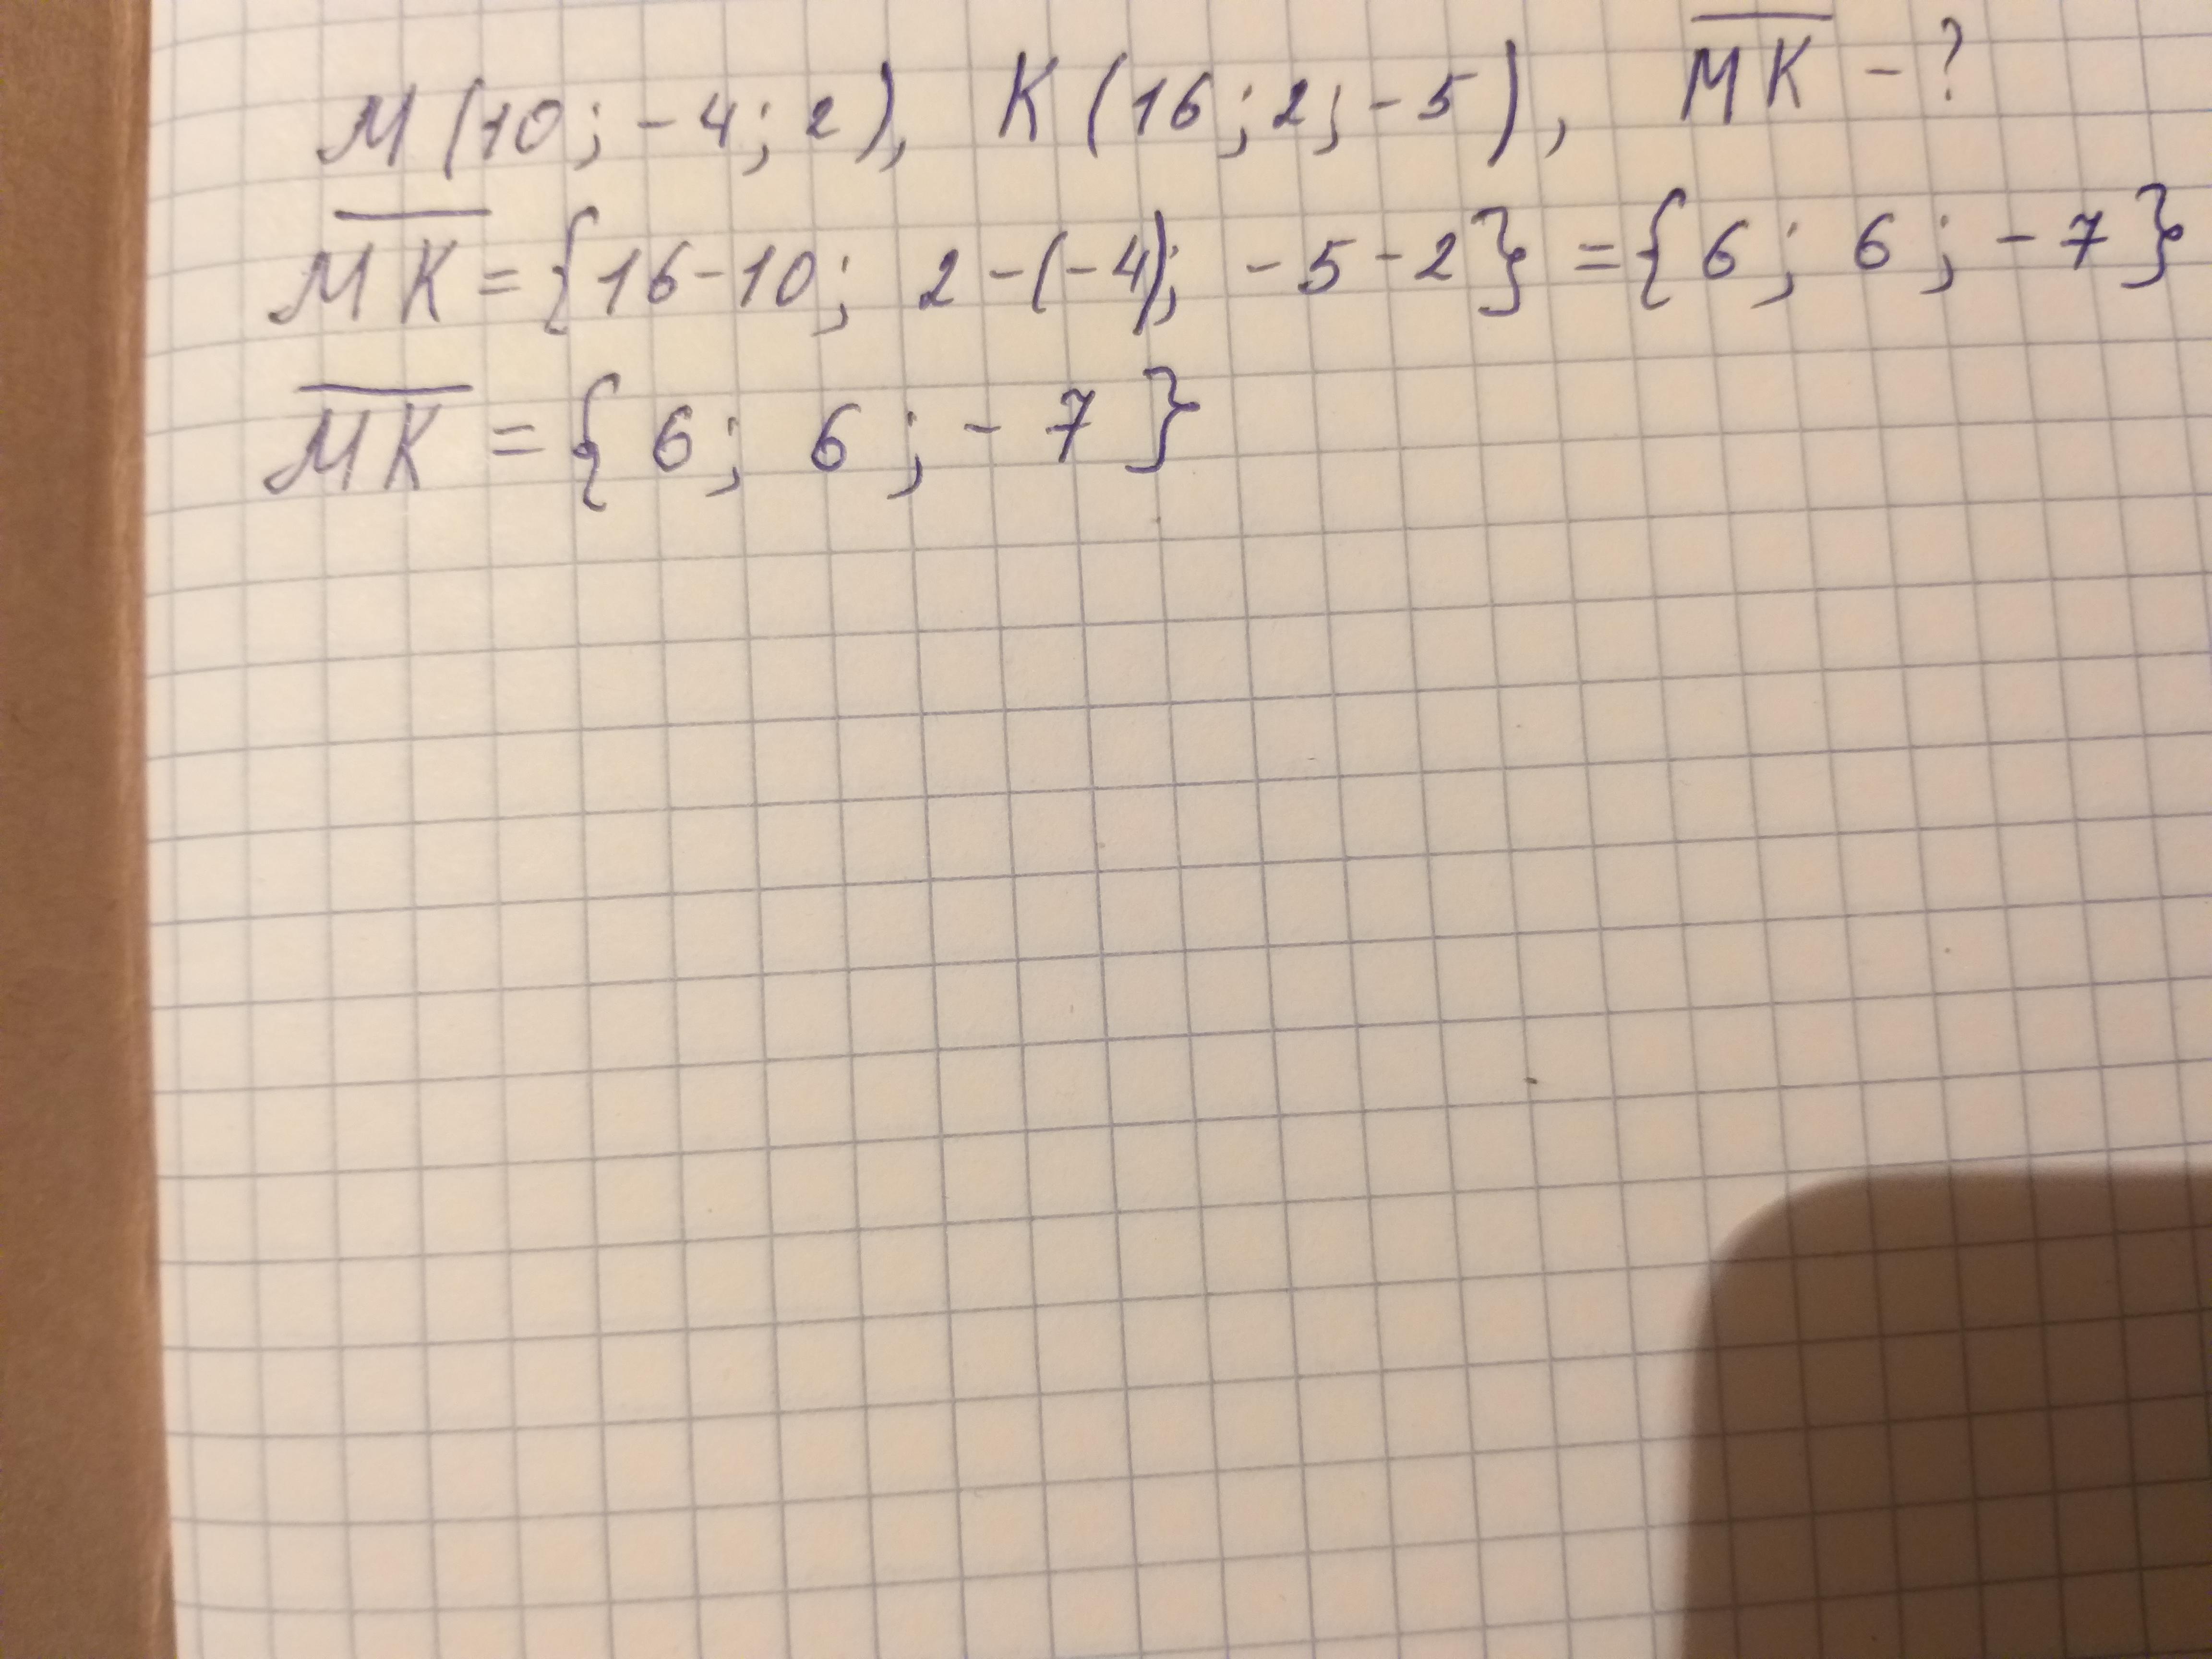 M(10; -4; 2), K(16; 2; -5), M̅K̅ - ?
M̅K̅ = {16-10; 2-(-4); -5-2} = {6; 6; -7}
M̅K̅ = {6; 6; -7}